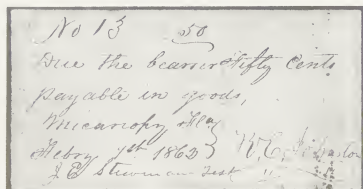 No 13 50
Due the bearer Fifty Cents
payable in goods,
Micanopy Fla
Febry 1st 1862